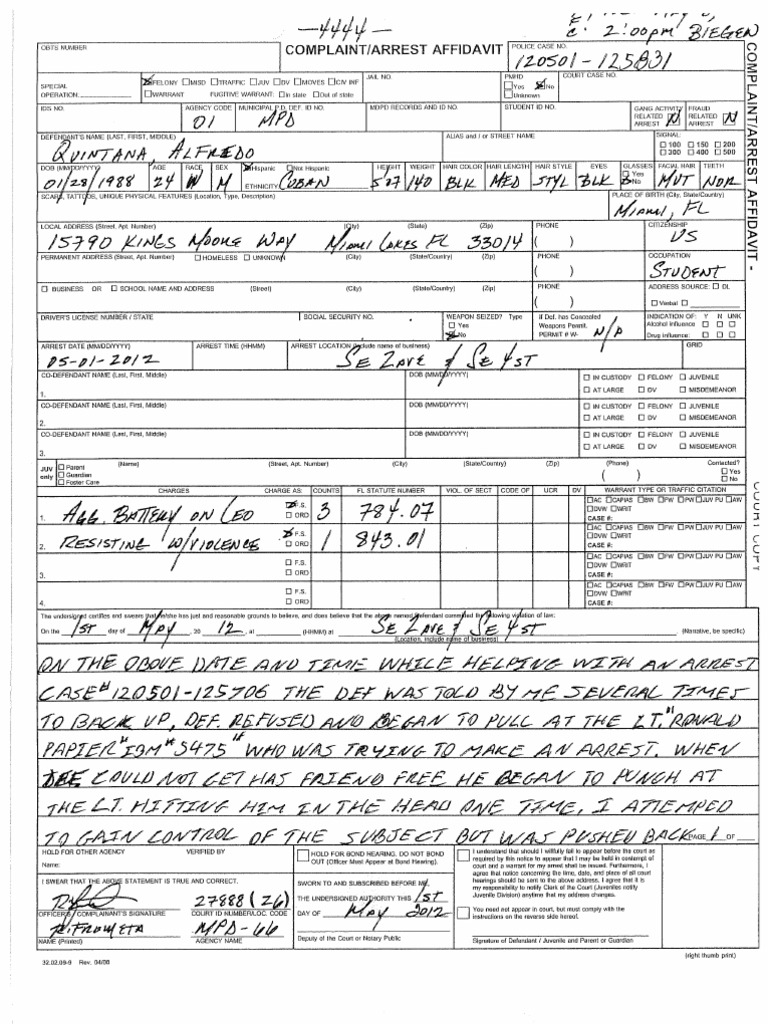 -4444-
2:00pm BIEGEN
OBTS NUMBER
COMPLAINT/ARREST AFFIDAVIT
POLICE CASE NO.
120501-125831
SPECIAL OPERATION:
FELONY MISD TRAFFIC JUV DV MOVES C/V INF
WARRANT FUGITIVE WARRANT: In state Out of state
JAIL NO.
PMHD Yes No Unknown
COURT CASE NO.
IDS NO.
AGENCY CODE
01
MUNICIPAL P.D. DEF. ID NO.
MPD
MDPD RECORDS AND ID NO.
STUDENT ID NO.
GANG ACTIVITY RELATED ARREST N
FRAUD RELATED ARREST N
DEFENDANT'S NAME (LAST, FIRST, MIDDLE)
QUINTANA, ALFREDO
ALIAS and / or STREET NAME
SIGNAL:
100 150 200
300 400 500
DOB (MM/DD/YYYY) AGE RACE SEX Hispanic Not Hispanic HEIGHT WEIGHT HAIR COLOR HAIR LENGTH HAIR STYLE EYES GLASSES Yes No FACIAL HAIR TEETH
01/28/1988 24 W M ETHNICITY: CUBAN 5'07 140 BLK MED STYL BLK MUT NOR
SCARS, TATTOOS, UNIQUE PHYSICAL FEATURES (Location, Type, Description)
PLACE OF BIRTH (City, State/Country)
MIAMI, FL
LOCAL ADDRESS (Street, Apt. Number) (City) (State) (Zip) PHONE CITIZENSHIP
15790 KINGS MOORE WAY MIAMI LAKES FL 33014 ( ) US
PERMANENT ADDRESS (Street, Apt. Number) HOMELESS UNKNOWN (City) (State/Country) (Zip) PHONE OCCUPATION
( ) STUDENT
BUSINESS OR SCHOOL NAME AND ADDRESS (Street) (City) (State/Country) (Zip) PHONE ADDRESS SOURCE: DL
( ) Verbal
DRIVER'S LICENSE NUMBER / STATE
SOCIAL SECURITY NO.
WEAPON SEIZED? Type
Yes
No
If Def. has Concealed Weapons Permit. PERMIT # W- N/A
INDICATION OF: Y N UNK
Alcohol Influence
Drug Influence:
ARREST DATE (MM/DD/YYYY) ARREST TIME (HHMM) ARREST LOCATION (Include name of business) GRID
05-01-2012 SE 2AVE & SE 4ST
CO-DEFENDANT NAME (Last, First, Middle) DOB (MM/DD/YYYY) IN CUSTODY FELONY JUVENILE
1. AT LARGE DV MISDEMEANOR
CO-DEFENDANT NAME (Last, First, Middle) DOB (MM/DD/YYYY) IN CUSTODY FELONY JUVENILE
2. AT LARGE DV MISDEMEANOR
CO-DEFENDANT NAME (Last, First, Middle) DOB (MM/DD/YYYY) IN CUSTODY FELONY JUVENILE
3. AT LARGE DV MISDEMEANOR
JUV only Parent Guardian Foster Care (Name) (Street, Apt. Number) (City) (State/Country) (Zip) (Phone) Contacted?
( ) Yes No
CHARGES CHARGE AS: COUNTS FL STATUTE NUMBER VIOL. OF SECT CODE OF UCR DV WARRANT TYPE OR TRAFFIC CITATION
1. AGG. BATTERY ON LEO F.S. ORD 3 784.07 AC CAPIAS BW FW PW JUV PU AW DVW WRIT CASE #:
2. RESISTING W/VIOLENCE F.S. ORD 1 843.01 AC CAPIAS BW FW PW JUV PU AW DVW WRIT CASE #:
3. F.S. ORD AC CAPIAS BW FW PW JUV PU AW DVW WRIT CASE #:
4. F.S. ORD AC CAPIAS BW FW PW JUV PU AW DVW WRIT CASE #:
The undersigned certifies and swears that he/she has just and reasonable grounds to believe, and does believe that the above named Defendant committed the following violation of law:
On the 1ST day of MAY, 20 12, at (HHMM) at SE 2AVE & SE 4ST (Narrative, be specific)
(Location, include name of business)
ON THE ABOVE DATE AND TIME WHILE HELPING WITH AN ARREST
CASE# 120501-125706 THE DEF WAS TOLD BY ME SEVERAL TIMES
TO BACK UP, DEF. REFUSED AND BEGAN TO PULL AT THE LT. "RONALD
PAPIER" IBM# "5475" WHO WAS TRYING TO MAKE AN ARREST. WHEN
COULD NOT GET HAS FRIEND FREE HE BEGAN TO PUNCH AT
THE LT. HITTING HIM IN THE HEAD ONE TIME, I ATTEMPED
TO GAIN CONTROL OF THE SUBJECT BUT WAS PUSHED BACK PAGE 1 OF
HOLD FOR OTHER AGENCY VERIFIED BY
Name:
HOLD FOR BOND HEARING. DO NOT BOND OUT (Officer Must Appear at Bond Hearing).
I understand that should I willfully fail to appear before the court as
required by this notice to appear that I may be held in contempt of
court and a warrant for my arrest shall be issued. Furthermore, I
agree that notice concerning the time, date, and place of all court
hearings should be sent to the above address. I agree that it is
my responsibility to notify Clerk of the Court (Juveniles notify
Juvenile Division) anytime that my address changes.
You need not appear in court, but must comply with the
instructions on the reverse side hereof.
I SWEAR THAT THE ABOVE STATEMENT IS TRUE AND CORRECT.
27888 (26)
OFFICER'S / COMPLAINANT'S SIGNATURE COURT ID NUMBER/LOC. CODE
R. FROMETA MPD-66
NAME (Printed) AGENCY NAME
SWORN TO AND SUBSCRIBED BEFORE ME,
THE UNDERSIGNED AUTHORITY THIS 1ST
DAY OF MAY 2012
Deputy of the Court or Notary Public
Signature of Defendant / Juvenile and Parent or Guardian
32.02.09-9 Rev. 04/08
(right thumb print)
COMPLAINT/ARREST AFFIDAVIT -
COURT COPY